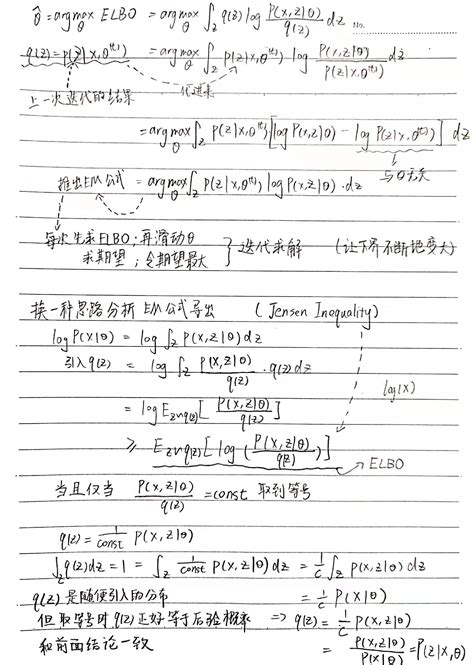 θ̂ = argmax_θ ELBO = argmax_θ ∫_z q(z) log P(x,z|θ)/q(z) dz No.
q(z) = p(z|x,θ^(t)) = argmax_θ ∫_z p(z|x,θ^(t)) log P(x,z|θ)/P(z|x,θ^(t)) dz
上一次迭代的结果 代进来
= argmax_θ ∫_z P(z|x,θ^(t)) [log P(x,z|θ) − log P(z|x,θ^(t))] dz
与θ无关
推出EM公式 = argmax_θ ∫_z P(z|x,θ^(t)) log P(x,z|θ)·dz
每次先求ELBO; 再滑动θ
求期望 ; 令期望最大 } 迭代求解 (让下界不断地变大)
换一种思路分析 EM公式导出 (Jensen Inequality)
log P(x|θ) = log ∫_z P(x,z|θ) dz
引入q(z) = log ∫_z P(x,z|θ)/q(z) · q(z) dz
log(x)
= log E_z~q(z) [P(x,z|θ)/q(z)]
≥ E_z~q(z) [log (P(x,z|θ)/q(z))]
ELBO
当且仅当 P(x,z|θ)/q(z) = const 取到等号
q(z) = 1/const P(x,z|θ)
∫_z q(z) dz = 1 = ∫_z 1/const P(x,z|θ) dz = 1/c ∫_z P(x,z|θ) dz
q(z) 是随便引入的分布 = 1/c P(x|θ)
但取等号时 q(z) 正好等于后验概率 ⇒ q(z) = 1/c P(x,z|θ)
和前面结论一致 = P(x,z|θ)/P(x|θ) = P(z|x,θ)